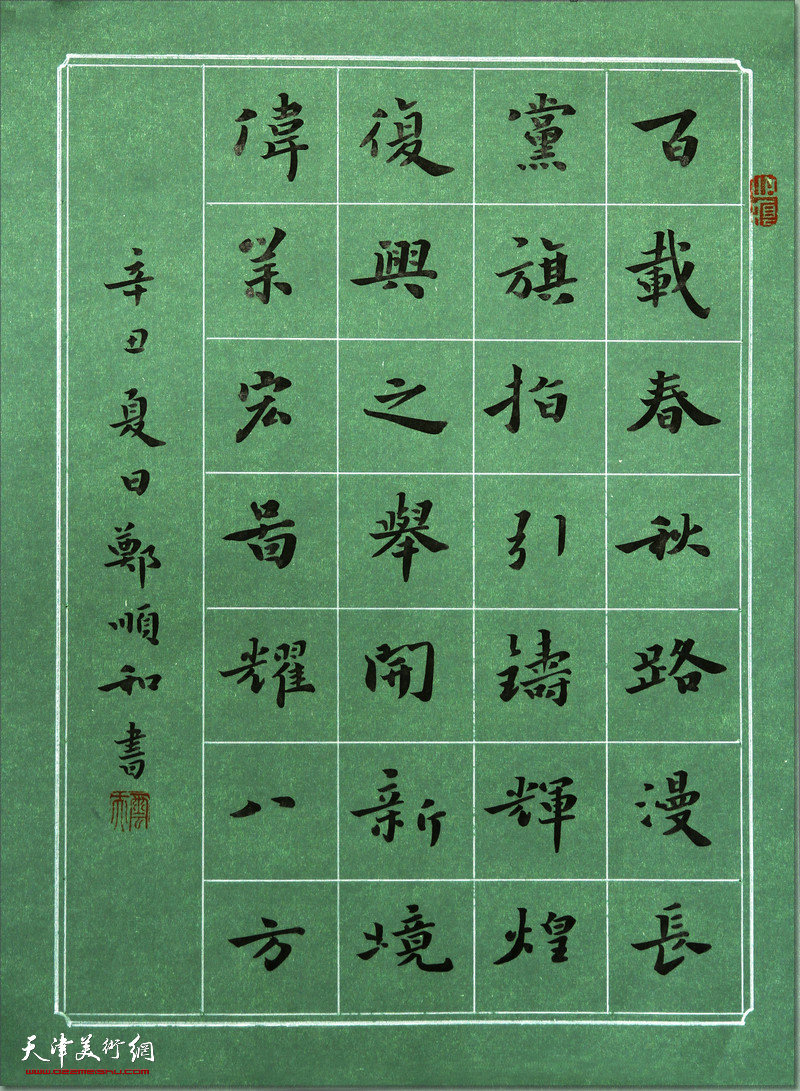 百載春秋路漫長
黨旗拍引鑄輝煌
復興之舉開新境
偉業宏啚耀八方
辛丑夏日鄭順和書
天津美術網
www.022meishu.com